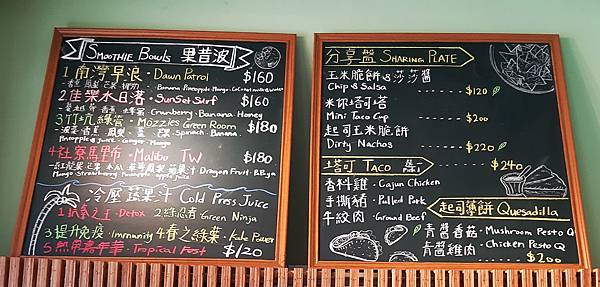 SMOOTHIE BOWLS 果昔波
1 南灣早浪・DAWN PATROL $160
Banana Pineapple Mango Coconut milk & water
2 佳樂水日落・SUNSET SURF $160
Cranberry・Banana Honey
3 竹坑綠管・MOZZIES GREEN ROOM $180
Spinach・Banana・
Pineapple & juice・Ginger・Mango
4 社寮馬里布・MALIBU TW $180
Dragon Fruit・Banana
Mango・Strawberry・Pineapple・apple juice
冷壓蔬果汁 COLD PRESS JUICE
1 排毒之王・Detox・2 綠忍者 Green Ninja
3 提升免疫・Immunity 4 春之綠葉・Kale Power
5 熱帶嘉年華・Tropical Fest $120
分享盤 SHARING PLATE
玉米脆餅&莎莎醬
Chip & Salsa $120
米你塔可塔
Mini Taco Cup $200
起司玉米脆餅
Dirty Nachos $220
塔可 TACO $240
香料雞・Cajun Chicken
手撕豬・Pulled Pork
牛絞肉・Ground Beef
起司薄餅 QUESADILLA
青醬香菇・Mushroom Pesto Q
青醬雞肉・Chicken Pesto Q
$200